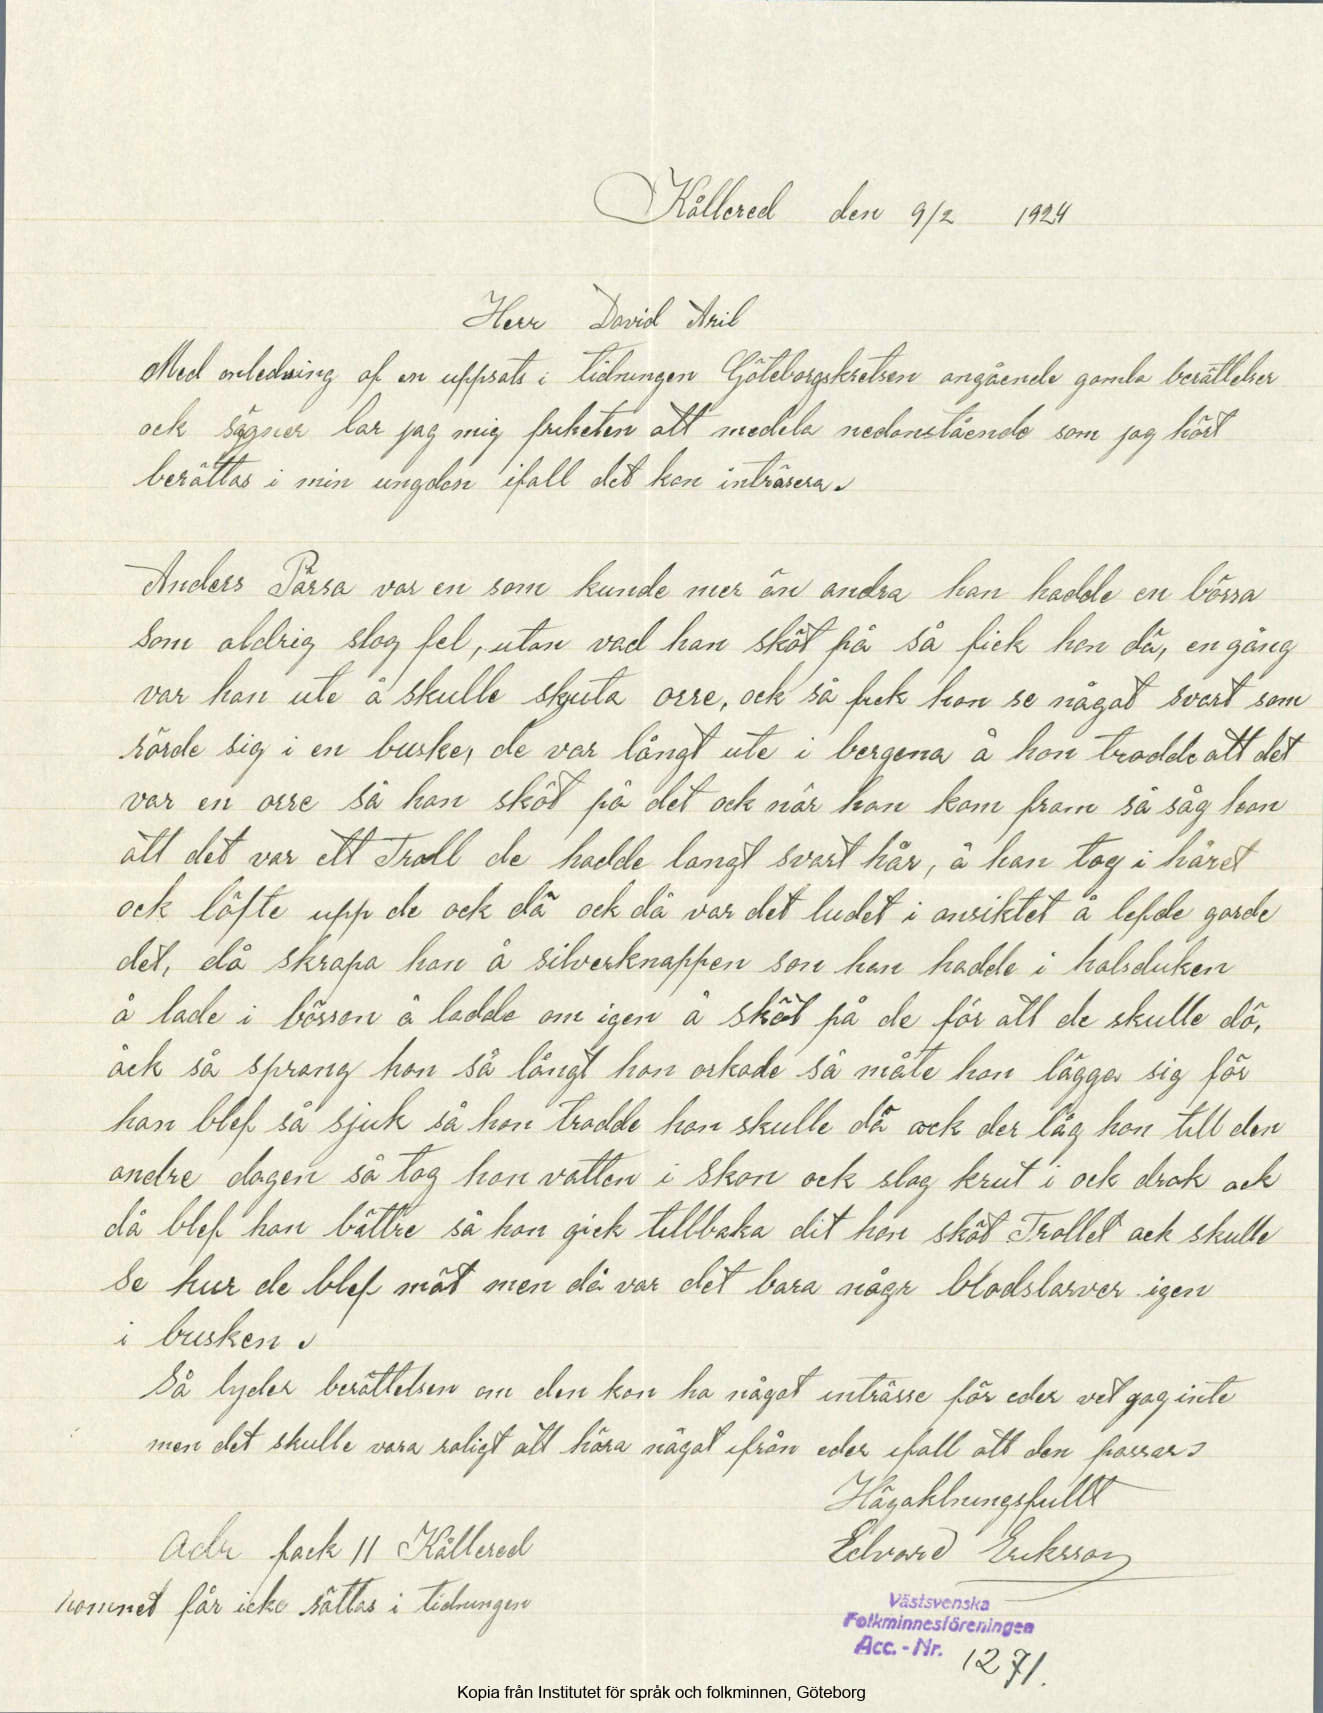 Kållered den 9/2 1924
Herr David Aril
Med anledning af en uppsats i tidningen Göteborgskretsen angående gamla berättelser
ock sägner tar jag mig friheten att medela nedanstående som jag hört
berättas i min ungdon ifall det kan inträsera.
Anders Pärsa var en som kunde mer än andra han hadde en bössa
som aldrig slog fel, utan vad han sköt på så fick han dä, en gång
var han ute å skulle skjuta orre, ock så fick han se något svart som
rörde sig i en buske, de var långt ute i bergena å han trodde att det
var en orre så han sköt på det ock när han kom fram så såg han
att det var ett Troll de hadde langt svart hår, å han tog i håret
ock löfte upp de ock då ock då var det ludet i ansiktet å lefde gorde
det, då skrapa han å silverknappen son han hadde i halsduken
å lade i bössan å ladde om igen å sköt på de för att de skulle dö,
åck så sprang han så långt han orkade så måte han lägga sig för
han blef så sjuk så han trodde han skulle dö ock der låg han till den
andre dagen så tog han vatten i skon ock slog krut i ock drak ock
då blef han bättre så han gick tillbaka dit han sköt Trollet ock skulle
se hur de blef mät men då var det bara någr blodslarver igen
i busken.
Så lyder berättelsen om den kan ha någat inträsse för eder vet gag inte
men det skulle vara roligt att höra någat ifrån eder ifall att den passar.
Högaktningsfullt
Edvard Eriksson
Adr fack 11 Kållered
namnet får icke sättas i tidningen
Västsvenska
Folkminnesföreningen
Acc.-Nr. 1271.
Kopia från Institutet för språk och folkminnen, Göteborg